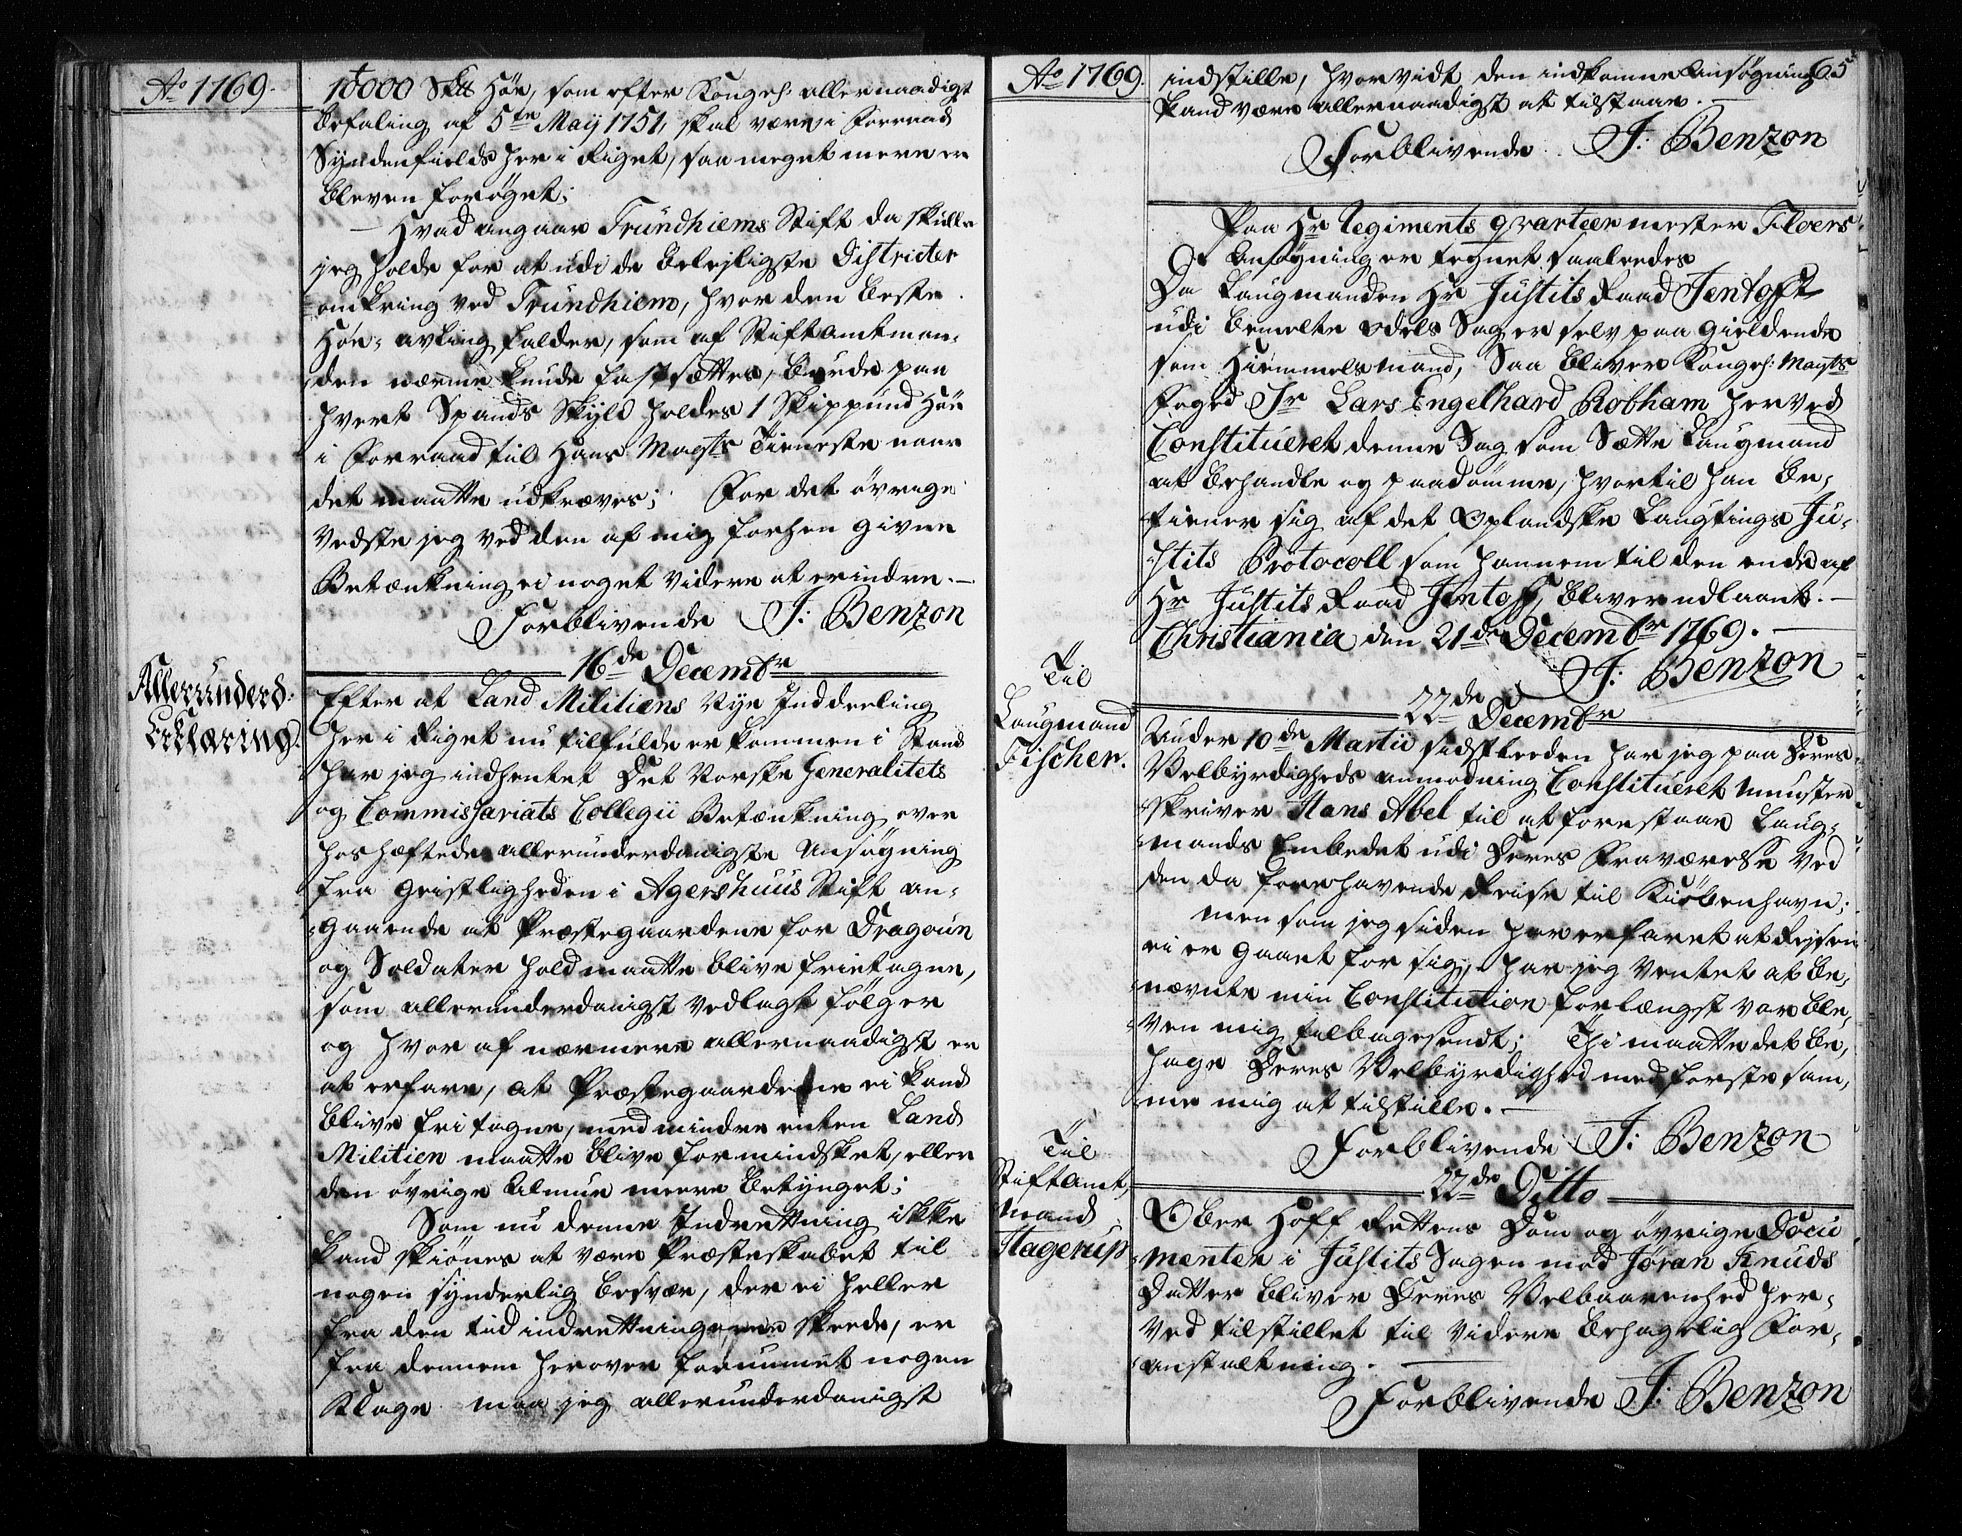 Ao 1769.
10000 Sk℔ Höe, som efter Kongel: allernaadigst
Befaling af 5te May 1751, skal være i Forraad
Syndenfields her i Riget, saa meget mere er
bleven forøget;
Hvad angaar Trundhiems Stift da skulle
jeg holde for at udi de belejligste Districter
omkring ved Trundhiem, hvor den beste
Høe-avling falder, som af Stiftamtman-
den nærmere kunde fastsættes, burde paa
hvert Spands Skyld holdes 1 Skippund Høe
i Forraad til Hans Mayts Tieneste naar
det maatte udkræves; For det øvrige
Vedste jeg ved den af mig forhen givne
Betænkning ei noget videre at erindre.
Forblivende J: Benzon
16de Decembr
Allerunderd:
Erklæring.
Efter at Land Militiens Nye Inddeeling
her i Riget nu tilfulde er kommen i Stand
har jeg indhentet Det Norske Generalitets
og Commissariats Collegii Betænkning over
hoshæftede allerunderdanigste Ansøgning
fra Geistligheden i Agershuus Stift an-
gaaende at Præstegaardene for Dragoun
og Soldater hold maatte blive frietagne,
som allerunderdanigst vedlagt følger
og hvor af nærmere allernaadigst er
at erfare, at Præstegaardene ei kand
blive fri tagne, med mindre enten Land
Militien maatte blive formindsket, eller
den øvrige Almue meere betynget;
Som nu denne Indrettning ikke
kand skiønes at være Præsteskabet til
nogen synderlig besvær, der ei heller
fra den tid indrettningerne skeede, er
fra dennem herover fornummet nogen
Klage maa jeg allerunderdanigst
Ao 1769.
65
indstille, hvorvidt den indkomne Ansøgning
kand være allernaadigst at tilstaae.
Forblivende J: Benzon
Paa Hr Regiments qvarteer mester Floers
Ansøgning er tegnet saaledes
Da Laugmanden Hr Justits Raad Jentoft
udi bemelte Odels Sag er selv paa gieldende
som Hiemmelsmand, Saa bliver Kongel: Mayts
Foged Sr Lars Engelhard Robsham herved
Constitueret denne Sag som Sætte Laugmand
at behandle og paadømme, hvortil han be-
tiener sig af det Oplandske Laugtings Ju-
stits Protocoll som hannem til den ende af
Hr Justits Raad Jentoft, bliver udlaant.
Christiania den 21de Decembr 1769.
J: Benzon
22de Decembr
Til
Laugmand
Fischer.
Under 10de Martii sidstleeden har jeg paa Deres
Velbyrdigheds anmodning Constitueret Munster
skriver Hans Abel til at forestaae Laug-
mands Embedet udi Deres Fraværelse ved
den da forehavende Reise til Kiøbenhavn;
men som jeg siden har erfaret at Rejsen
ei er gaaet for sig, har jeg ventet at be-
nævnte min Constitution forlængst var ble-
ven mig tilbagesendt; Thi maatte det be-
hage Deres Velbyrdighed med første sam-
me mig at tilstille.
Forblivende J: Benzon
22de Ditto
Til
Stiftamt
mand
Hagerup
Ober Hoff Rettens Dom og øvrige Docu
menter i Justits Sagen mod Jøran Knuds
Datter bliver Deres Velbaarenhed her-
ved tilstillet til videre behagelig For-
anstaltning.
Forblivende J: Benzon